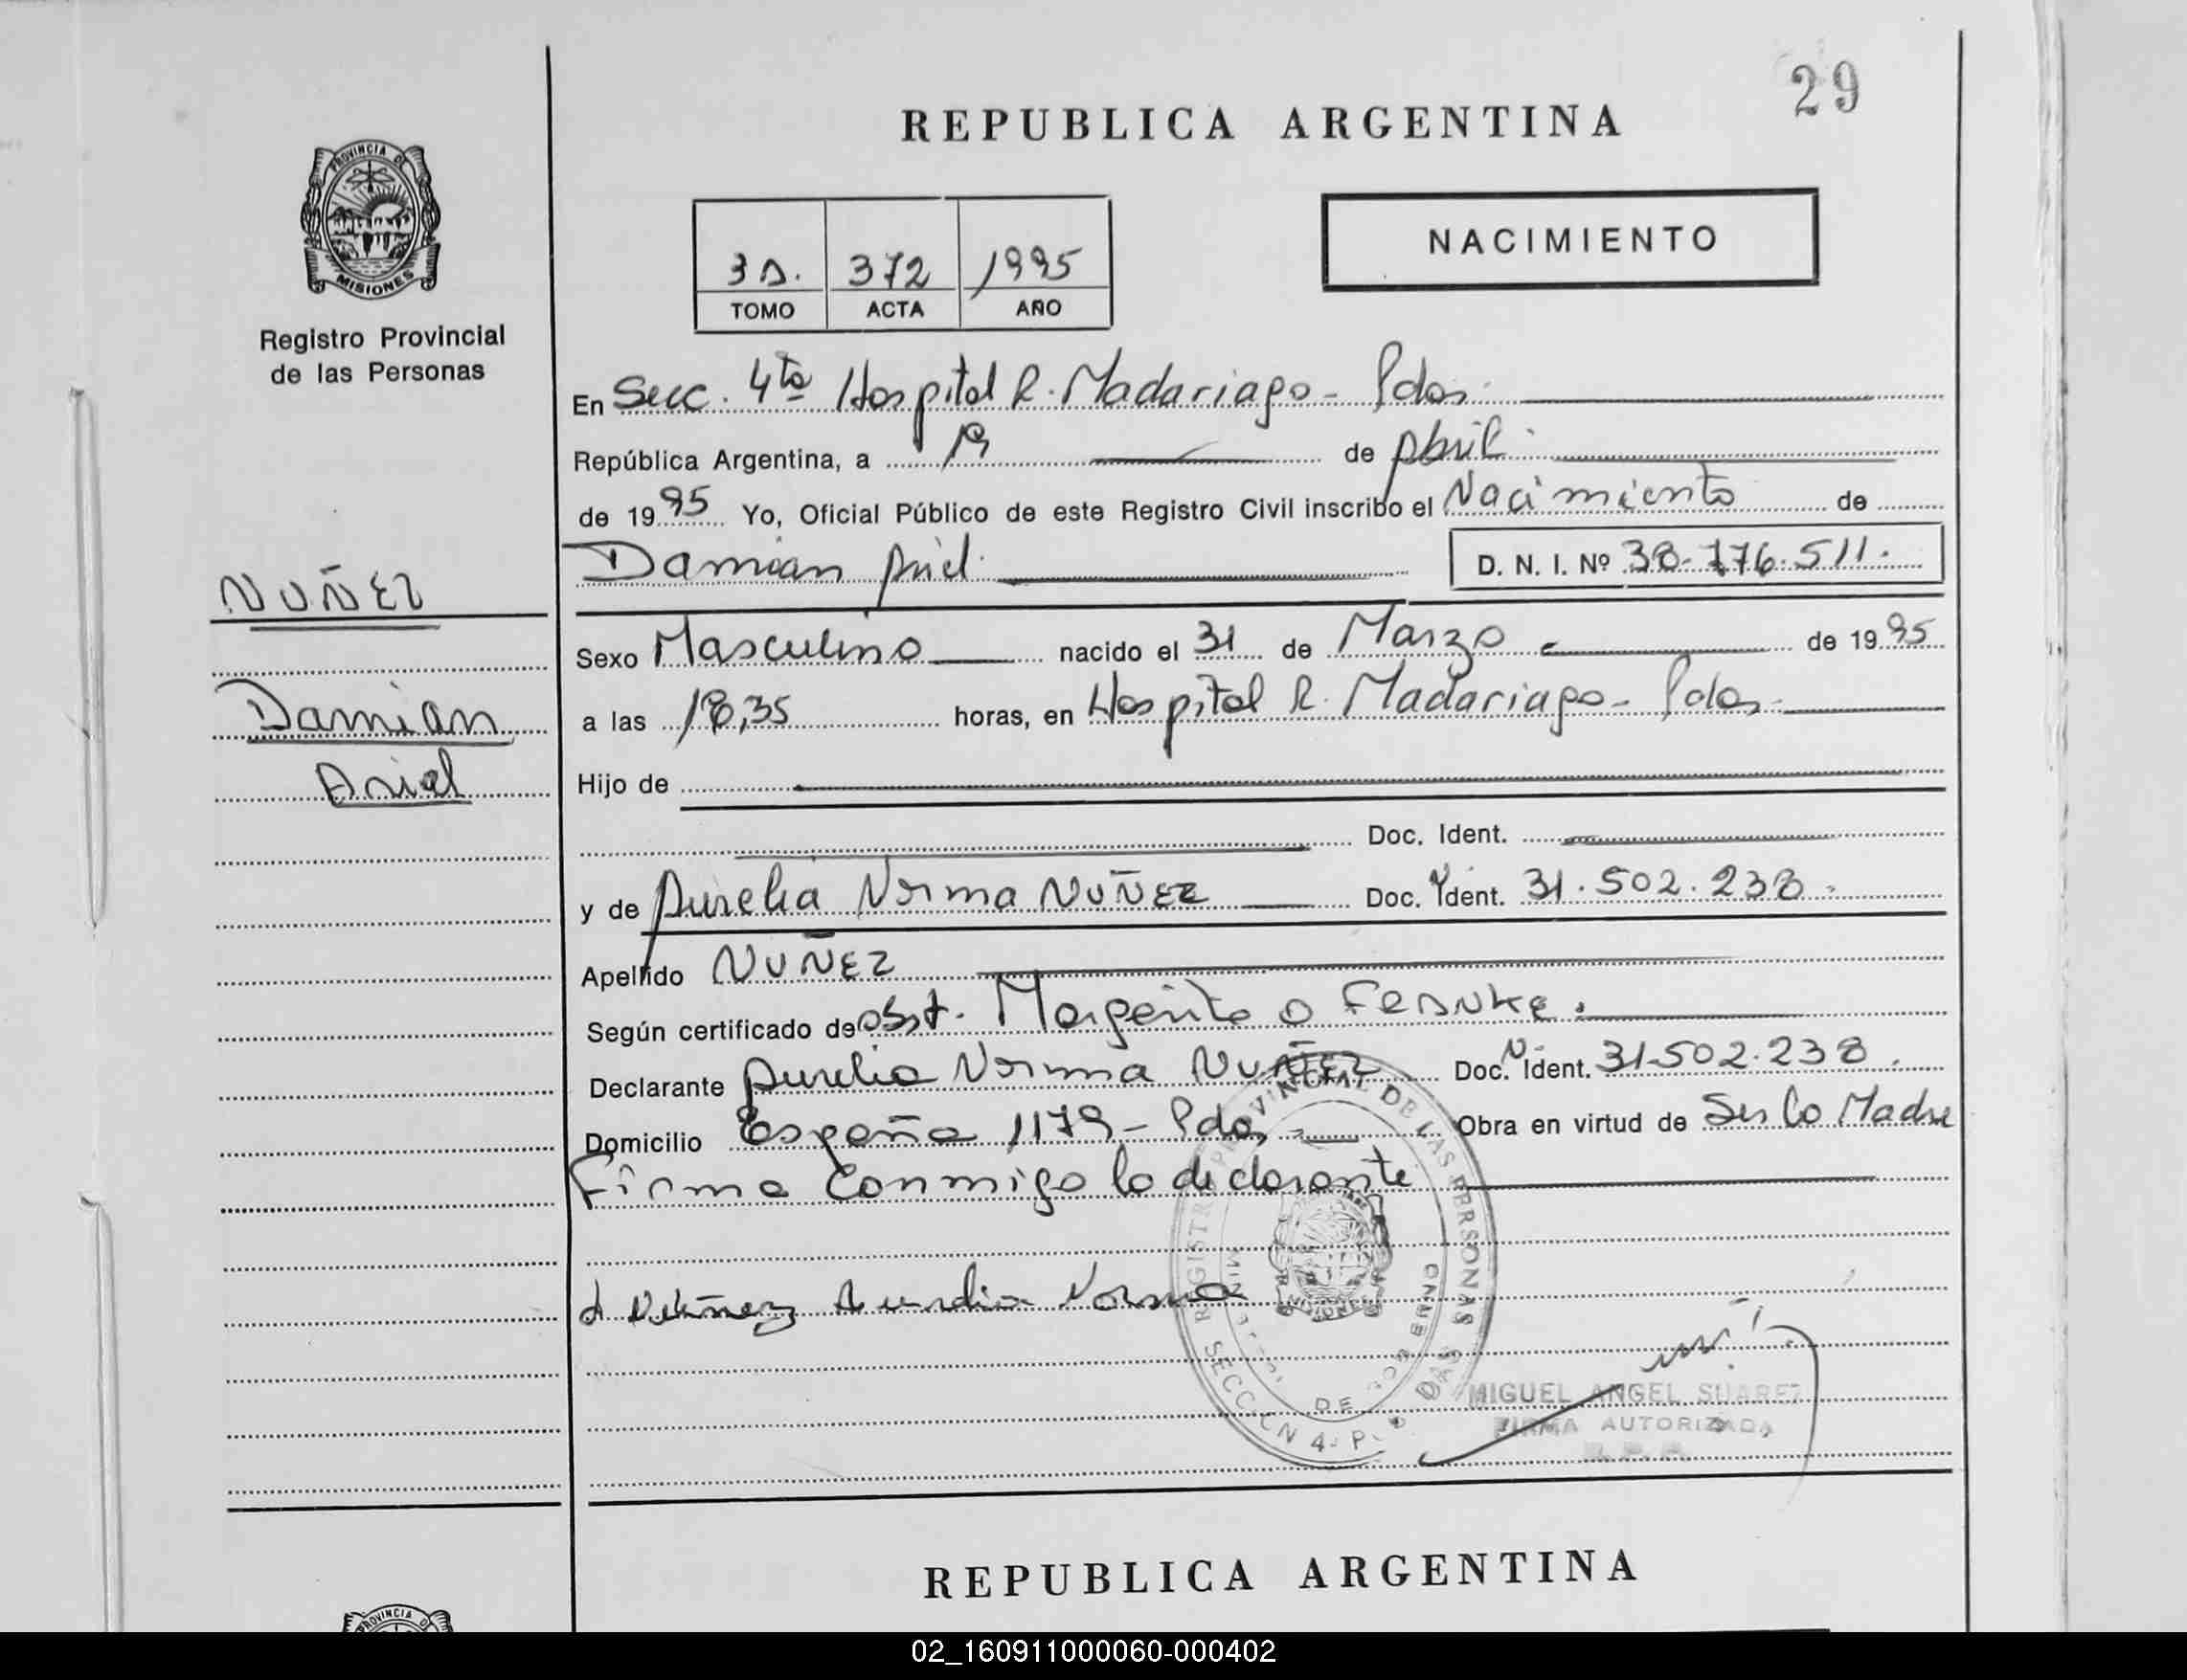 29
REPUBLICA ARGENTINA
PROVINCIA DE
MISIONES
Registro Provincial
de las Personas
3 D. 372 1995
TOMO ACTA AÑO
NACIMIENTO
En Secc. 4ta Hospital R. Madariaga - Pdas.
República Argentina, a 19 de Abril
de 1995 Yo, Oficial Público de este Registro Civil inscribo el Nacimiento de
Damian Ariel D. N. I. Nº 38.776.511.
NUÑEZ
Damian
Ariel
Sexo Masculino nacido el 31 de Marzo de 1995
a las 18,35 horas, en Hospital R. Madariaga - Pdas.
Hijo de
Doc. Ident.
y de Aurelia Norma NUÑEZ Doc. Ident. 31.502.238.
Apellido NUÑEZ
Según certificado de obst. Margarita
Declarante Aurelia Norma NUÑEZ Doc. Ident. 31.502.238.
Domicilio España 1179 - Pdas. Obra en virtud de Ser la Madre
Firma conmigo la declarante
Nuñez Aurelia Norma
REGISTRO PROVINCIAL DE LAS PERSONAS
MISIONES
MIGUEL ANGEL SUAREZ
FIRMA AUTORIZADA
REPUBLICA ARGENTINA
PROVINCIA D
02_160911000060-000402